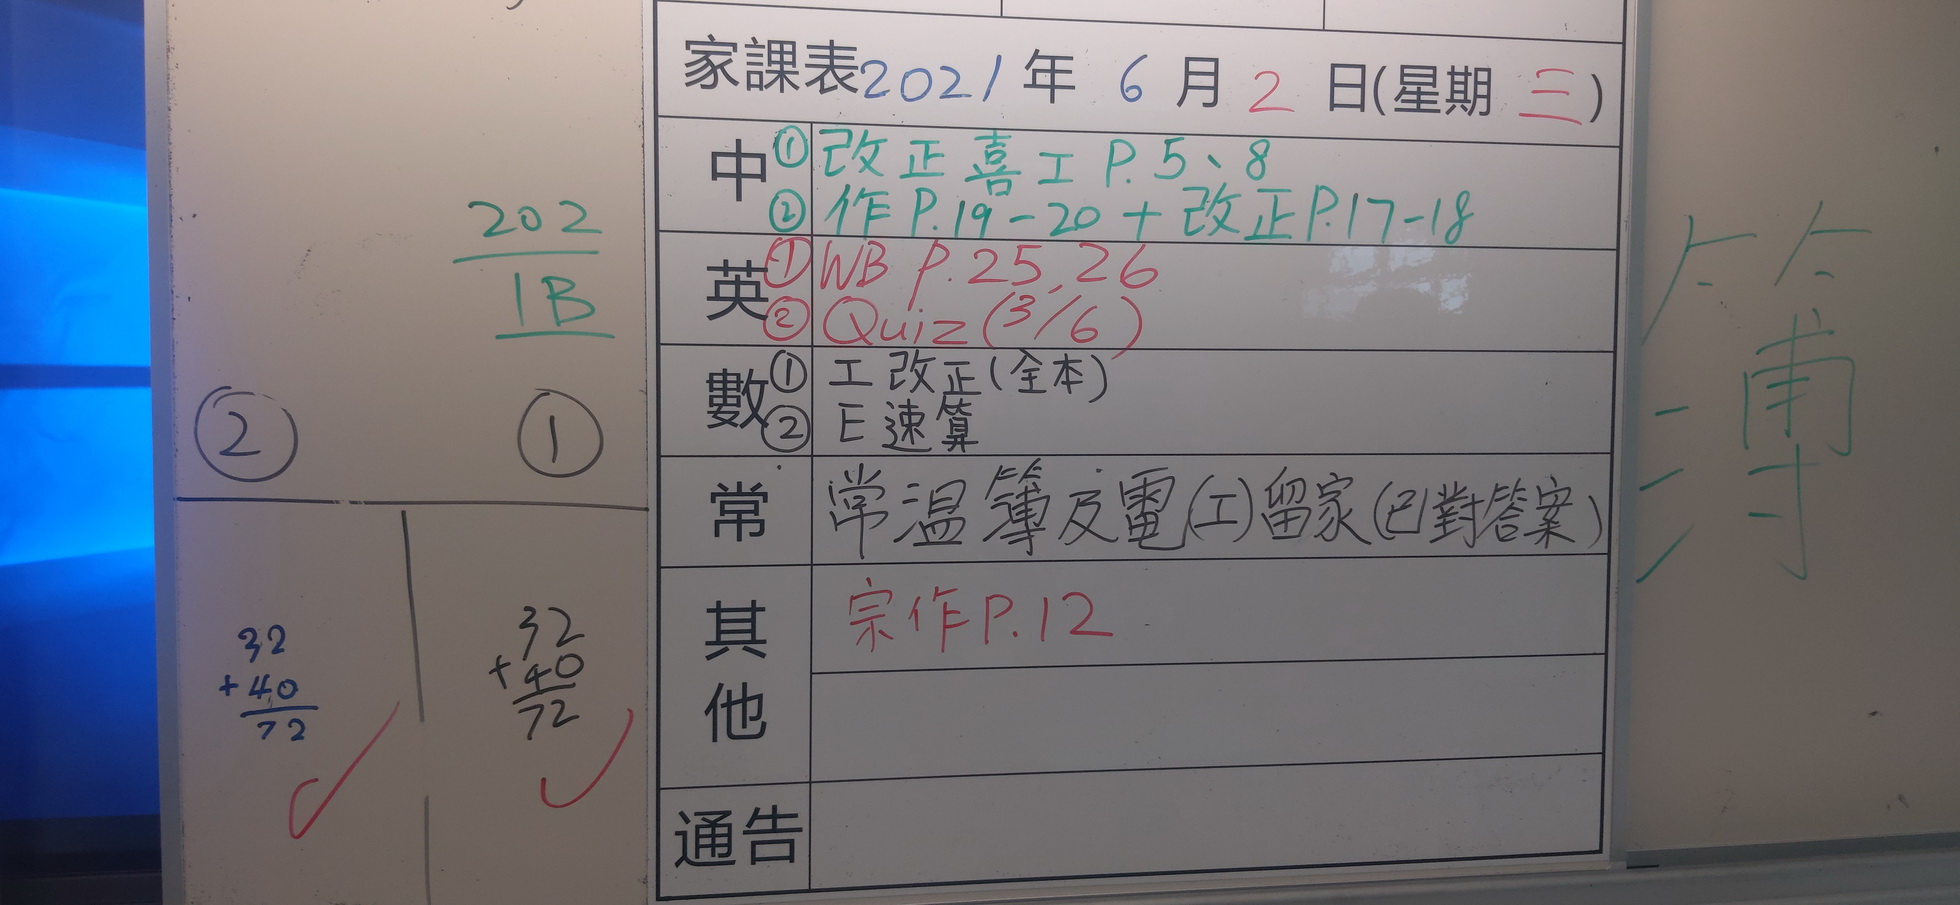 家課表2021年6月2日(星期三)
中 ① 改正喜工P.5、8
② 作P.19-20+改正P.17-18
英 ① WB P.25,26
② Quiz(3/6)
數 ① 工改正(全本)
② E速算
常 常溫簿及電(工)留家(已對答案)
其他 宗作P.12
通告
202
1B
② ①
32
+40
72
32
+40
72
簿